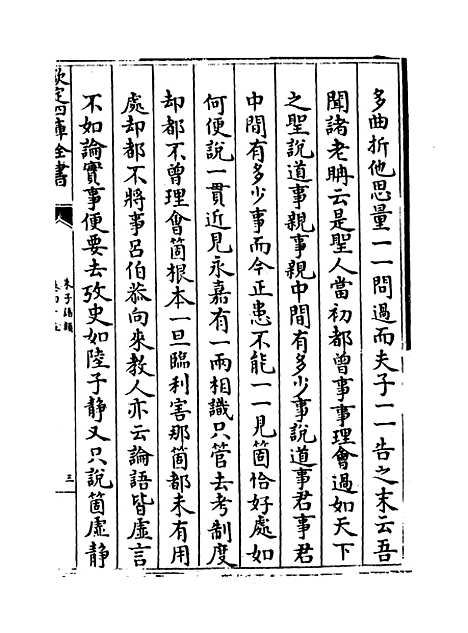 多曲折他思量一一問過而夫子一一告之末云吾
聞諸老聃云是聖人當初都曾事事理會過如天下
之聖說道事親事親中間有多少事說道事君事君
中間有多少事而今正患不能一一見箇恰好處如
何便說一貫近見永嘉有一兩相識只管去考制度
却都不曾理會箇根本一旦臨利害那箇都未有用
處却都不將事呂伯恭向來教人亦云論語皆虛言
不如論實事便要去攷史如陸子靜又只說箇虛靜
欽定四庫全書
朱子語類
三